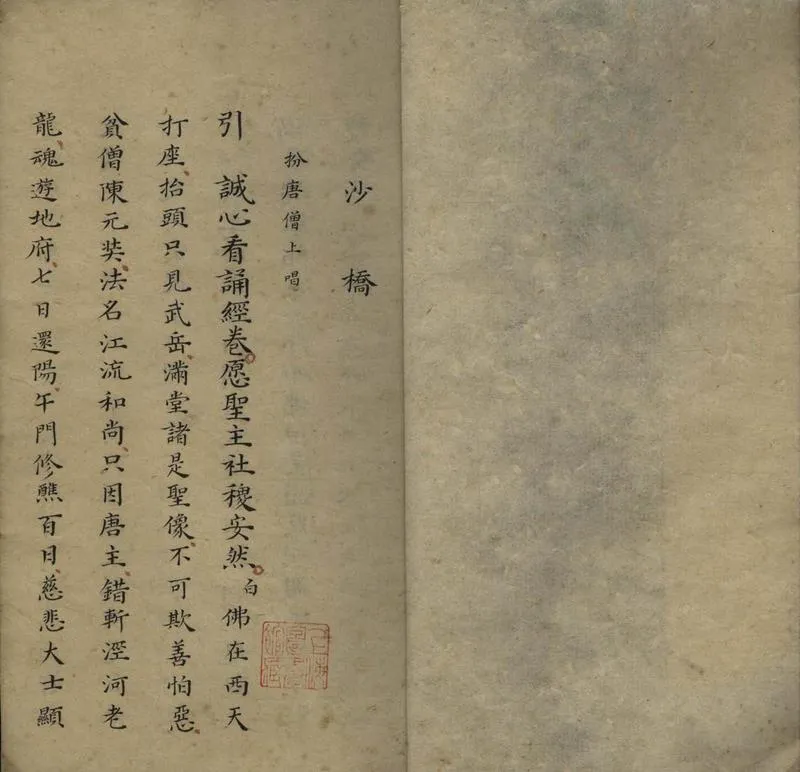 沙橋
扮唐僧上唱
引 誠心看誦經卷愿聖主社稷安然白佛在西天
打座抬頭只見武岳滿堂諸是聖像不可欺善怕惡
貧僧陳元奘法名江流和尚只因唐主錯斬涇河老
龍魂遊地府七日還陽午門修醮百日慈悲大士顯